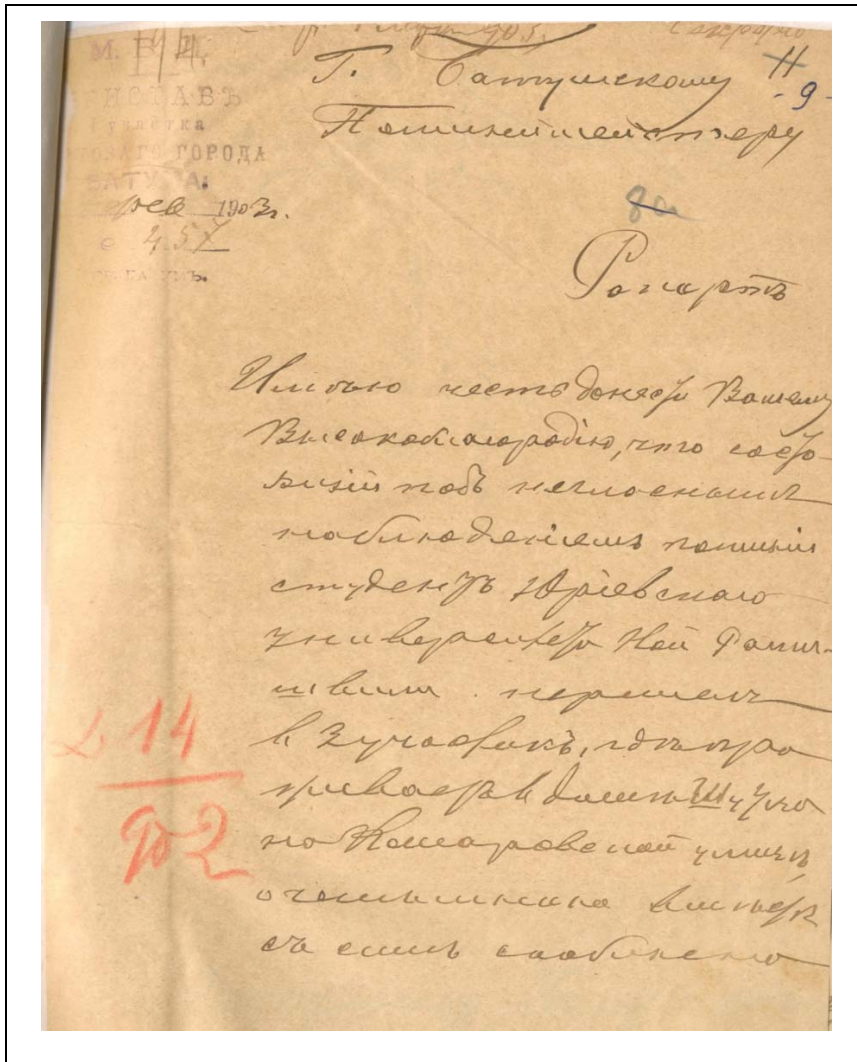 М. В. Д.
ПРИСТАВЪ
участка
ГОРОДА
БАТУМА.
фев 1903 г.
457
Г. Батумскому
Полицеймейстеру
11
-9-
8а
Рапортъ
Имѣю честь донести Вашему
Высокоблагородію, что состо-
ящій подъ негласнымъ
наблюденіемъ полиціи
студентъ Юріевскаго
университета Ной Рамиш-
швили перешелъ
въ 3 участокъ, гдѣ про
живаетъ въ домѣ
по Комаровской улицѣ,
о чемъ мною вмѣстѣ
съ симъ сообщено
14
92